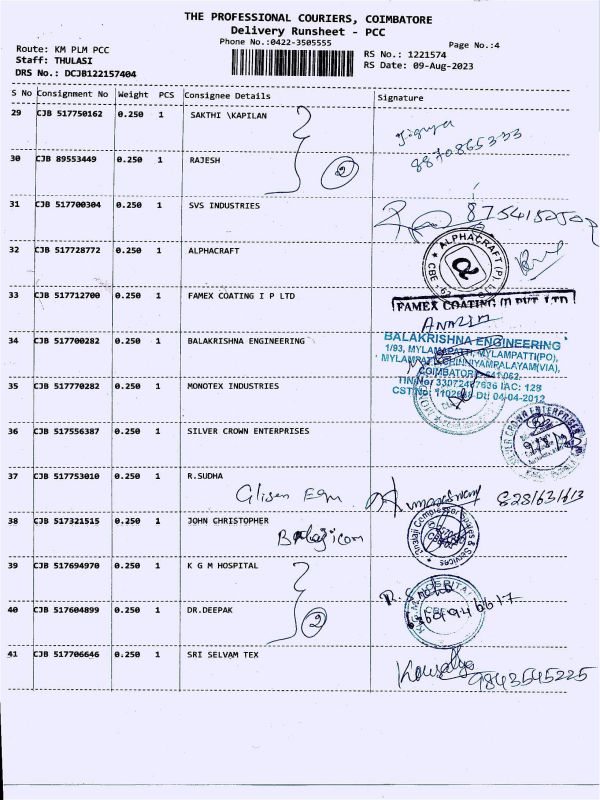 THE PROFESSIONAL COURIERS, COIMBATORE
Delivery Runsheet - PCC
Phone No.:0422-3505555
Page No.:4
Route: KM PLM PCC
Staff: THULASI
DRS No.: DCJB122157404
RS No.: 1221574
RS Date: 09-Aug-2023
S No Consignment No Weight PCS Consignee Details Signature
29 CJB 517750162 0.250 1 SAKTHI \KAPILAN
30 CJB 89553449 0.250 1 RAJESH
2
8870865333
31 CJB 517700304 0.250 1 SVS INDUSTRIES
32 CJB 517728772 0.250 1 ALPHACRAFT
ALPHACRAFT (P)
CBE
33 CJB 517712700 0.250 1 FAMEX COATING I P LTD
FAMEX COATING (I) PVT. LTD
34 CJB 517700282 0.250 1 BALAKRISHNA ENGINEERING
BALAKRISHNA ENGINEERING
1/93, MYLAMPATTI, MYLAMPATTI(PO),
MYLAMPATTI, CHINNIYAMPALAYAM(VIA),
COIMBATORE-641 062.
TIN No: 33072467636 IAC: 128
Dt: 04-04-2012
35 CJB 517770282 0.250 1 MONOTEX INDUSTRIES
36 CJB 517556387 0.250 1 SILVER CROWN ENTERPRISES
SILVER CROWN ENTERPRISES
37 CJB 517753010 0.250 1 R.SUDHA
38 CJB 517321515 0.250 1 JOHN CHRISTOPHER
Balaji com
Sales & Services
39 CJB 517694970 0.250 1 K G M HOSPITAL
K.G.M. HOSPITAL
CBE
40 CJB 517604899 0.250 1 DR.DEEPAK
2
41 CJB 517706646 0.250 1 SRI SELVAM TEX
Kowsalya
9843545225